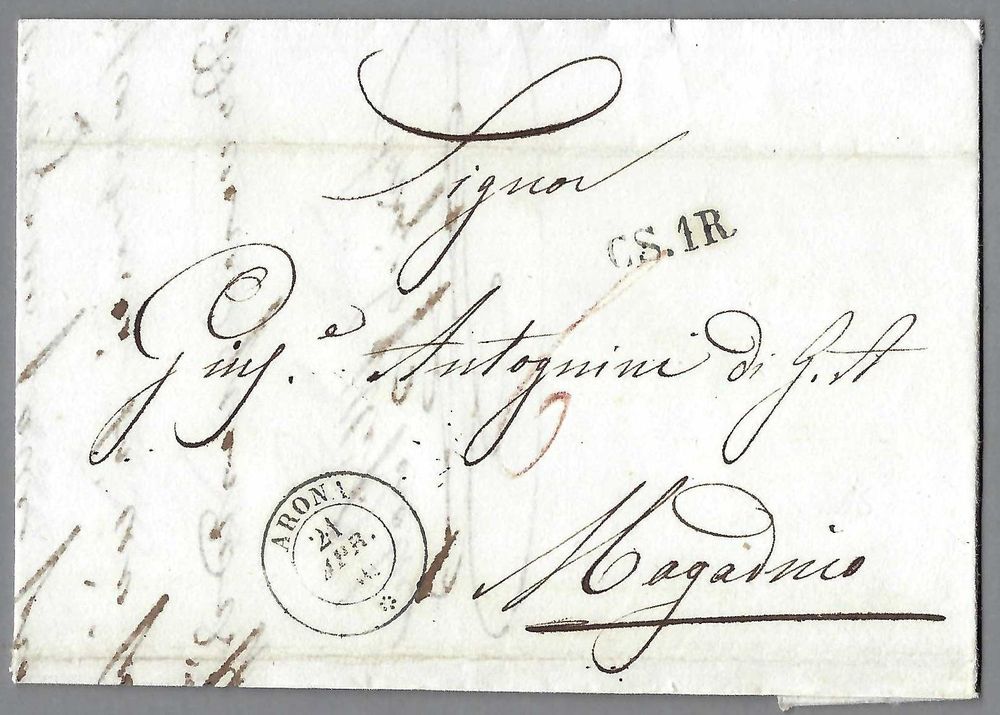 Signor
C.S.1R
Giuſ.e Antognini di G. A
Magadino
ARONA
21
APR.